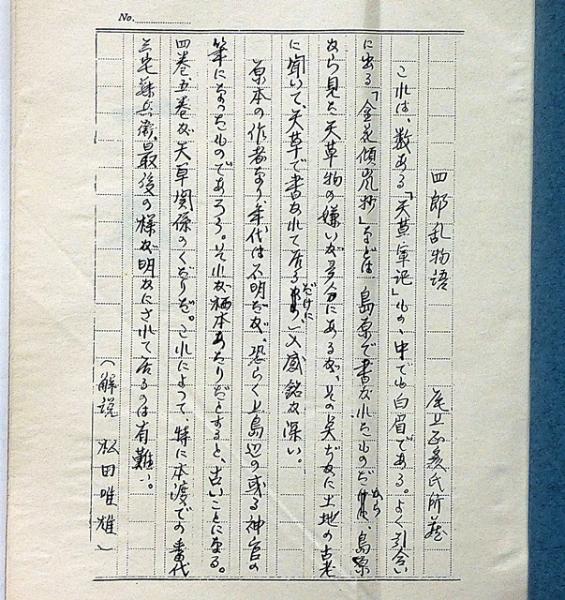 No.
四郎乱物語　尾上　氏所蔵
これは、数ある「天草軍記」もの、中でも白眉である。よく引合い
に出る「金花傾嵐抄」などは島原で書かれたものだから、島原
から見た天草物の嫌いが多分にあるが、その点ぢかに土地の古老
に聞いて、天草で書かれて居るだけに、感銘が深い。
原本の作者なり年代は不明だが、恐らく上島辺の或る神官の
筆になったものであろう。それが栖本あたりだとすると、古いことになる。
四巻五巻が天草関係のくだりだ。これによって、特に本渡での番代
三宅藤兵衛、最後の様が明かにされて居るのは有難い。
（解説　松田唯雄）